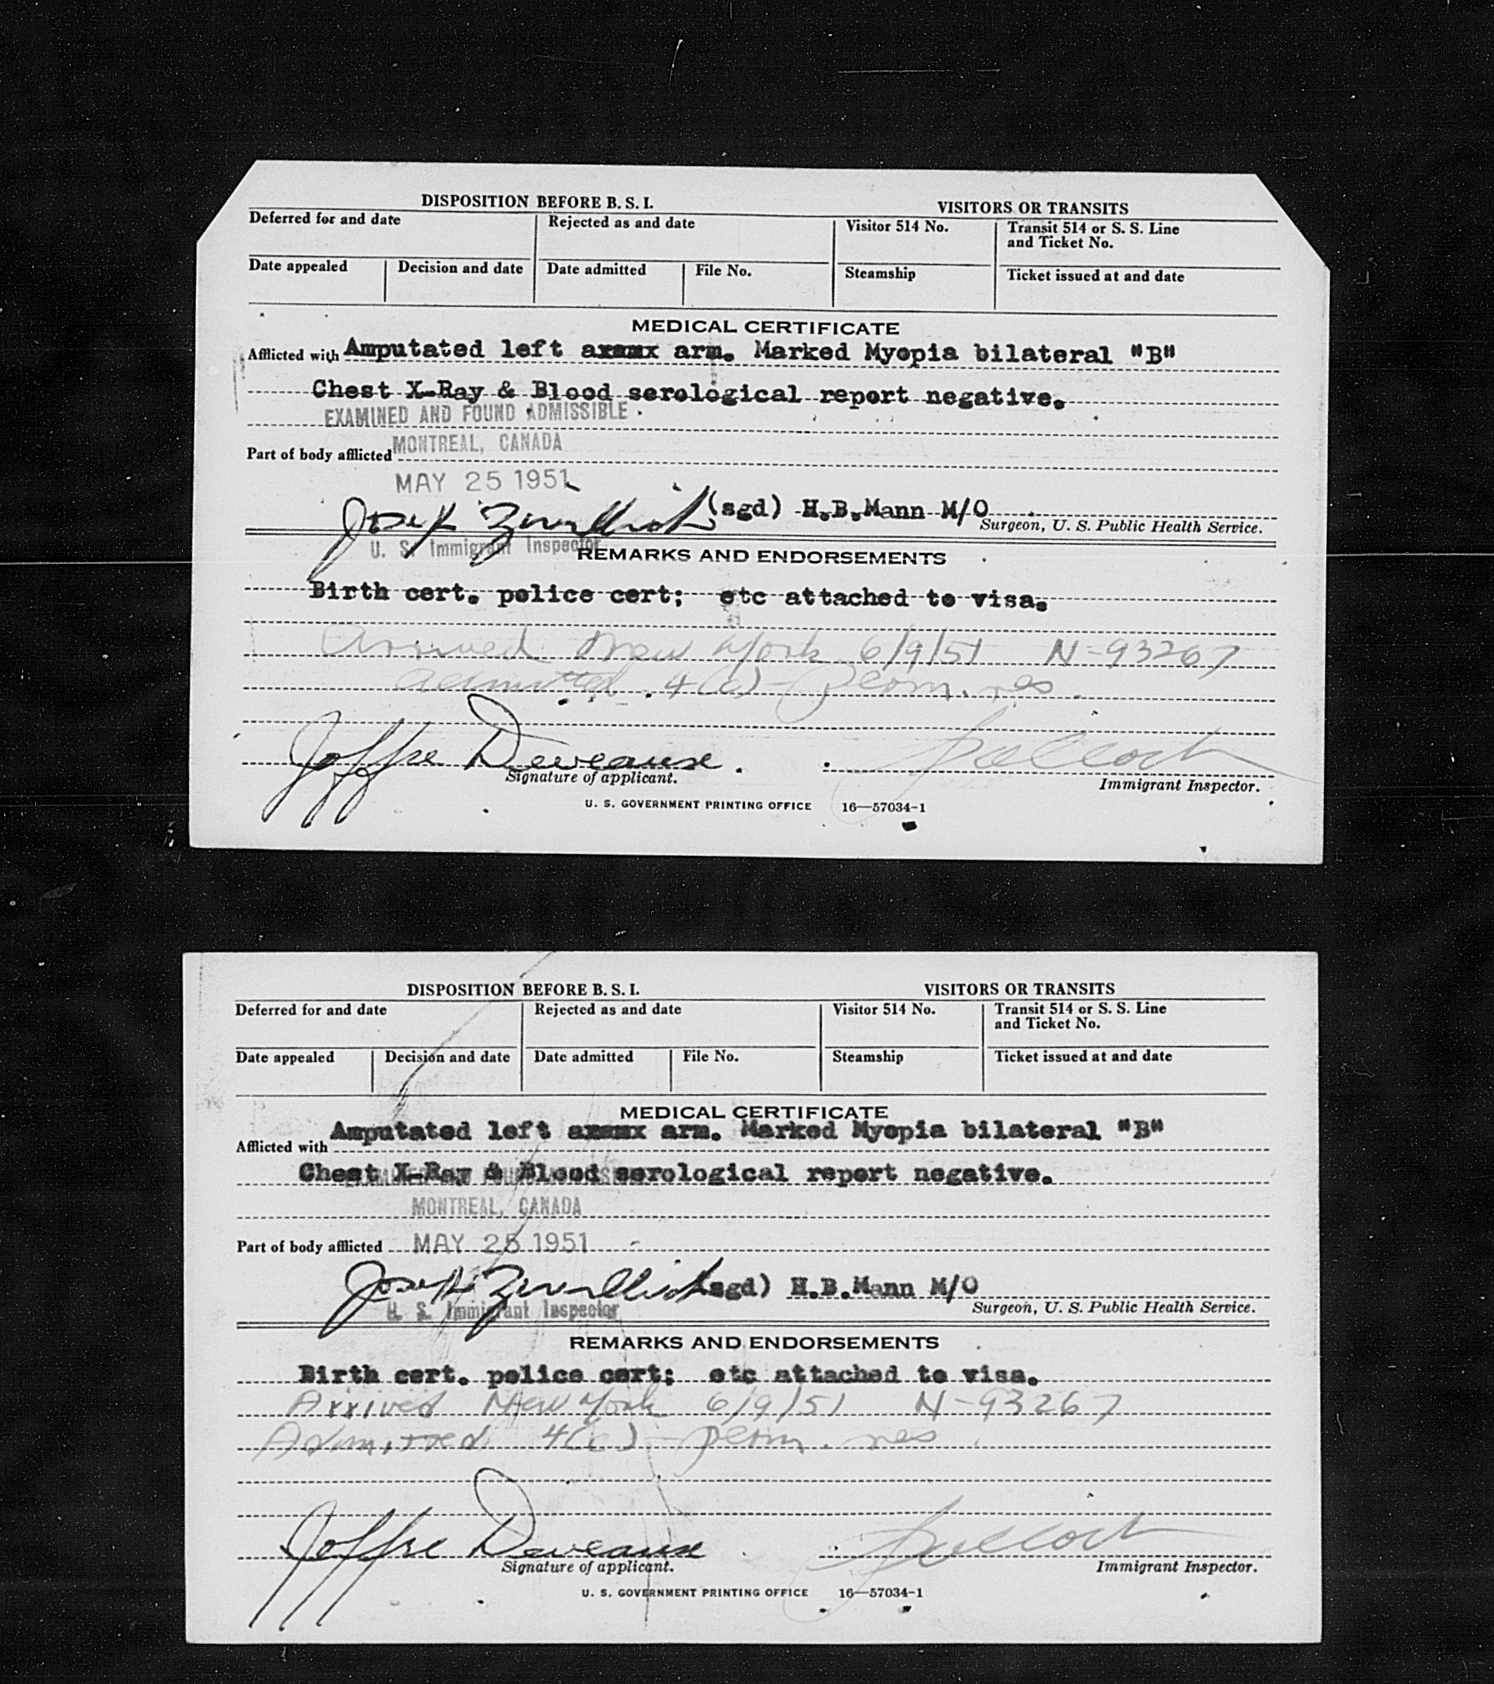 DISPOSITION BEFORE B. S. I. VISITORS OR TRANSITS
Deferred for and date Rejected as and date Visitor 514 No. Transit 514 or S. S. Line
and Ticket No.
Date appealed Decision and date Date admitted File No. Steamship Ticket issued at and date
MEDICAL CERTIFICATE
Afflicted with Amputated left axxmx arm. Marked Myopia bilateral "B"
Chest X-Ray & Blood serological report negative.
EXAMINED AND FOUND ADMISSIBLE
Part of body afflicted MONTREAL, CANADA
MAY 25 1951
Joseph (sgd) H.B.Mann M/O
Surgeon, U. S. Public Health Service.
U. S. Immigrant Inspector
REMARKS AND ENDORSEMENTS
Birth cert. police cert; etc attached to visa.
Arrived New York 6/9/51 N-93267
Admitted 4(c) - perm. res.
Joffre Deveaux
Signature of applicant. Immigrant Inspector.
U. S. GOVERNMENT PRINTING OFFICE 16—57034-1
DISPOSITION BEFORE B. S. I. VISITORS OR TRANSITS
Deferred for and date Rejected as and date Visitor 514 No. Transit 514 or S. S. Line
and Ticket No.
Date appealed Decision and date Date admitted File No. Steamship Ticket issued at and date
MEDICAL CERTIFICATE
Afflicted with Amputated left axxmx arm. Marked Myopia bilateral "B"
Chest X-Ray & Blood serological report negative.
MONTREAL, CANADA
Part of body afflicted MAY 25 1951
Joseph (sgd) H.B.Mann M/O
Surgeon, U. S. Public Health Service.
U. S. Immigrant Inspector
REMARKS AND ENDORSEMENTS
Birth cert. police cert; etc attached to visa.
Arrived New York 6/9/51 N-93267
Admitted 4(c) - perm. res.
Joffre Deveaux
Signature of applicant. Immigrant Inspector.
U. S. GOVERNMENT PRINTING OFFICE 16—57034-1